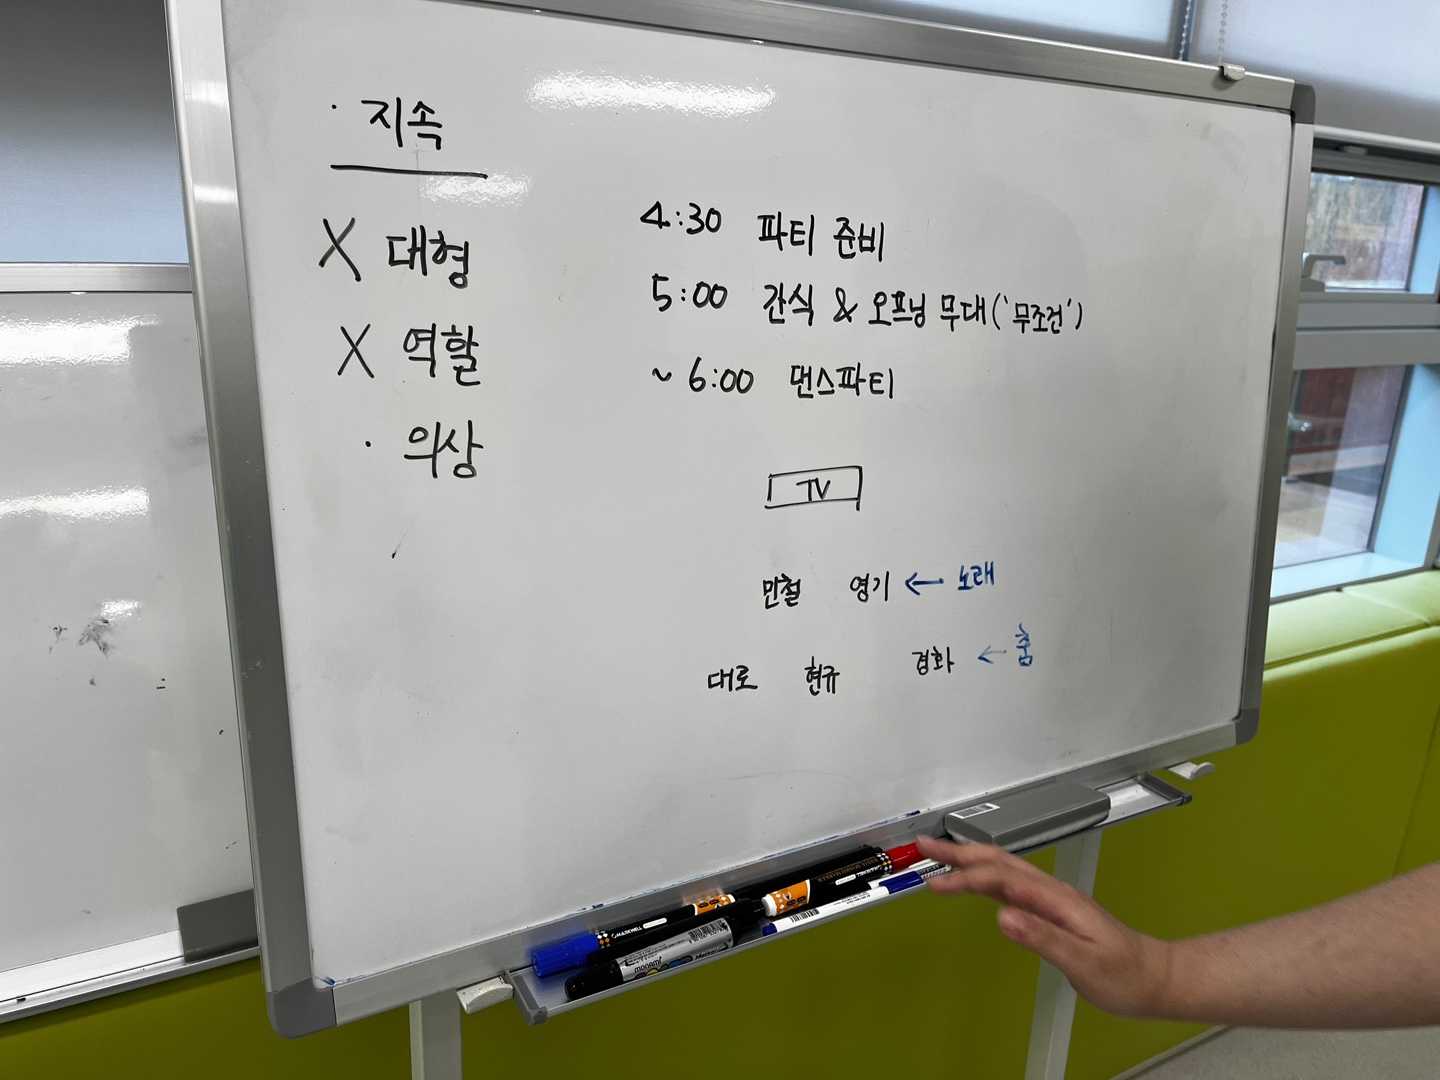 · 지속
X 대형
X 역할
· 의상
4:30 파티 준비
5:00 간식 & 오프닝 무대('무조건')
~ 6:00 댄스파티
TV
만철 영기 ← 노래
대로 현규 경화 ← 춤
monami